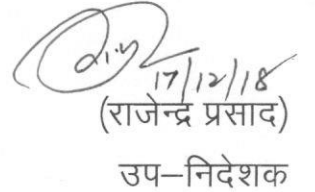 17/12/18
(राजेन्द्र प्रसाद)
उप–निदेशक